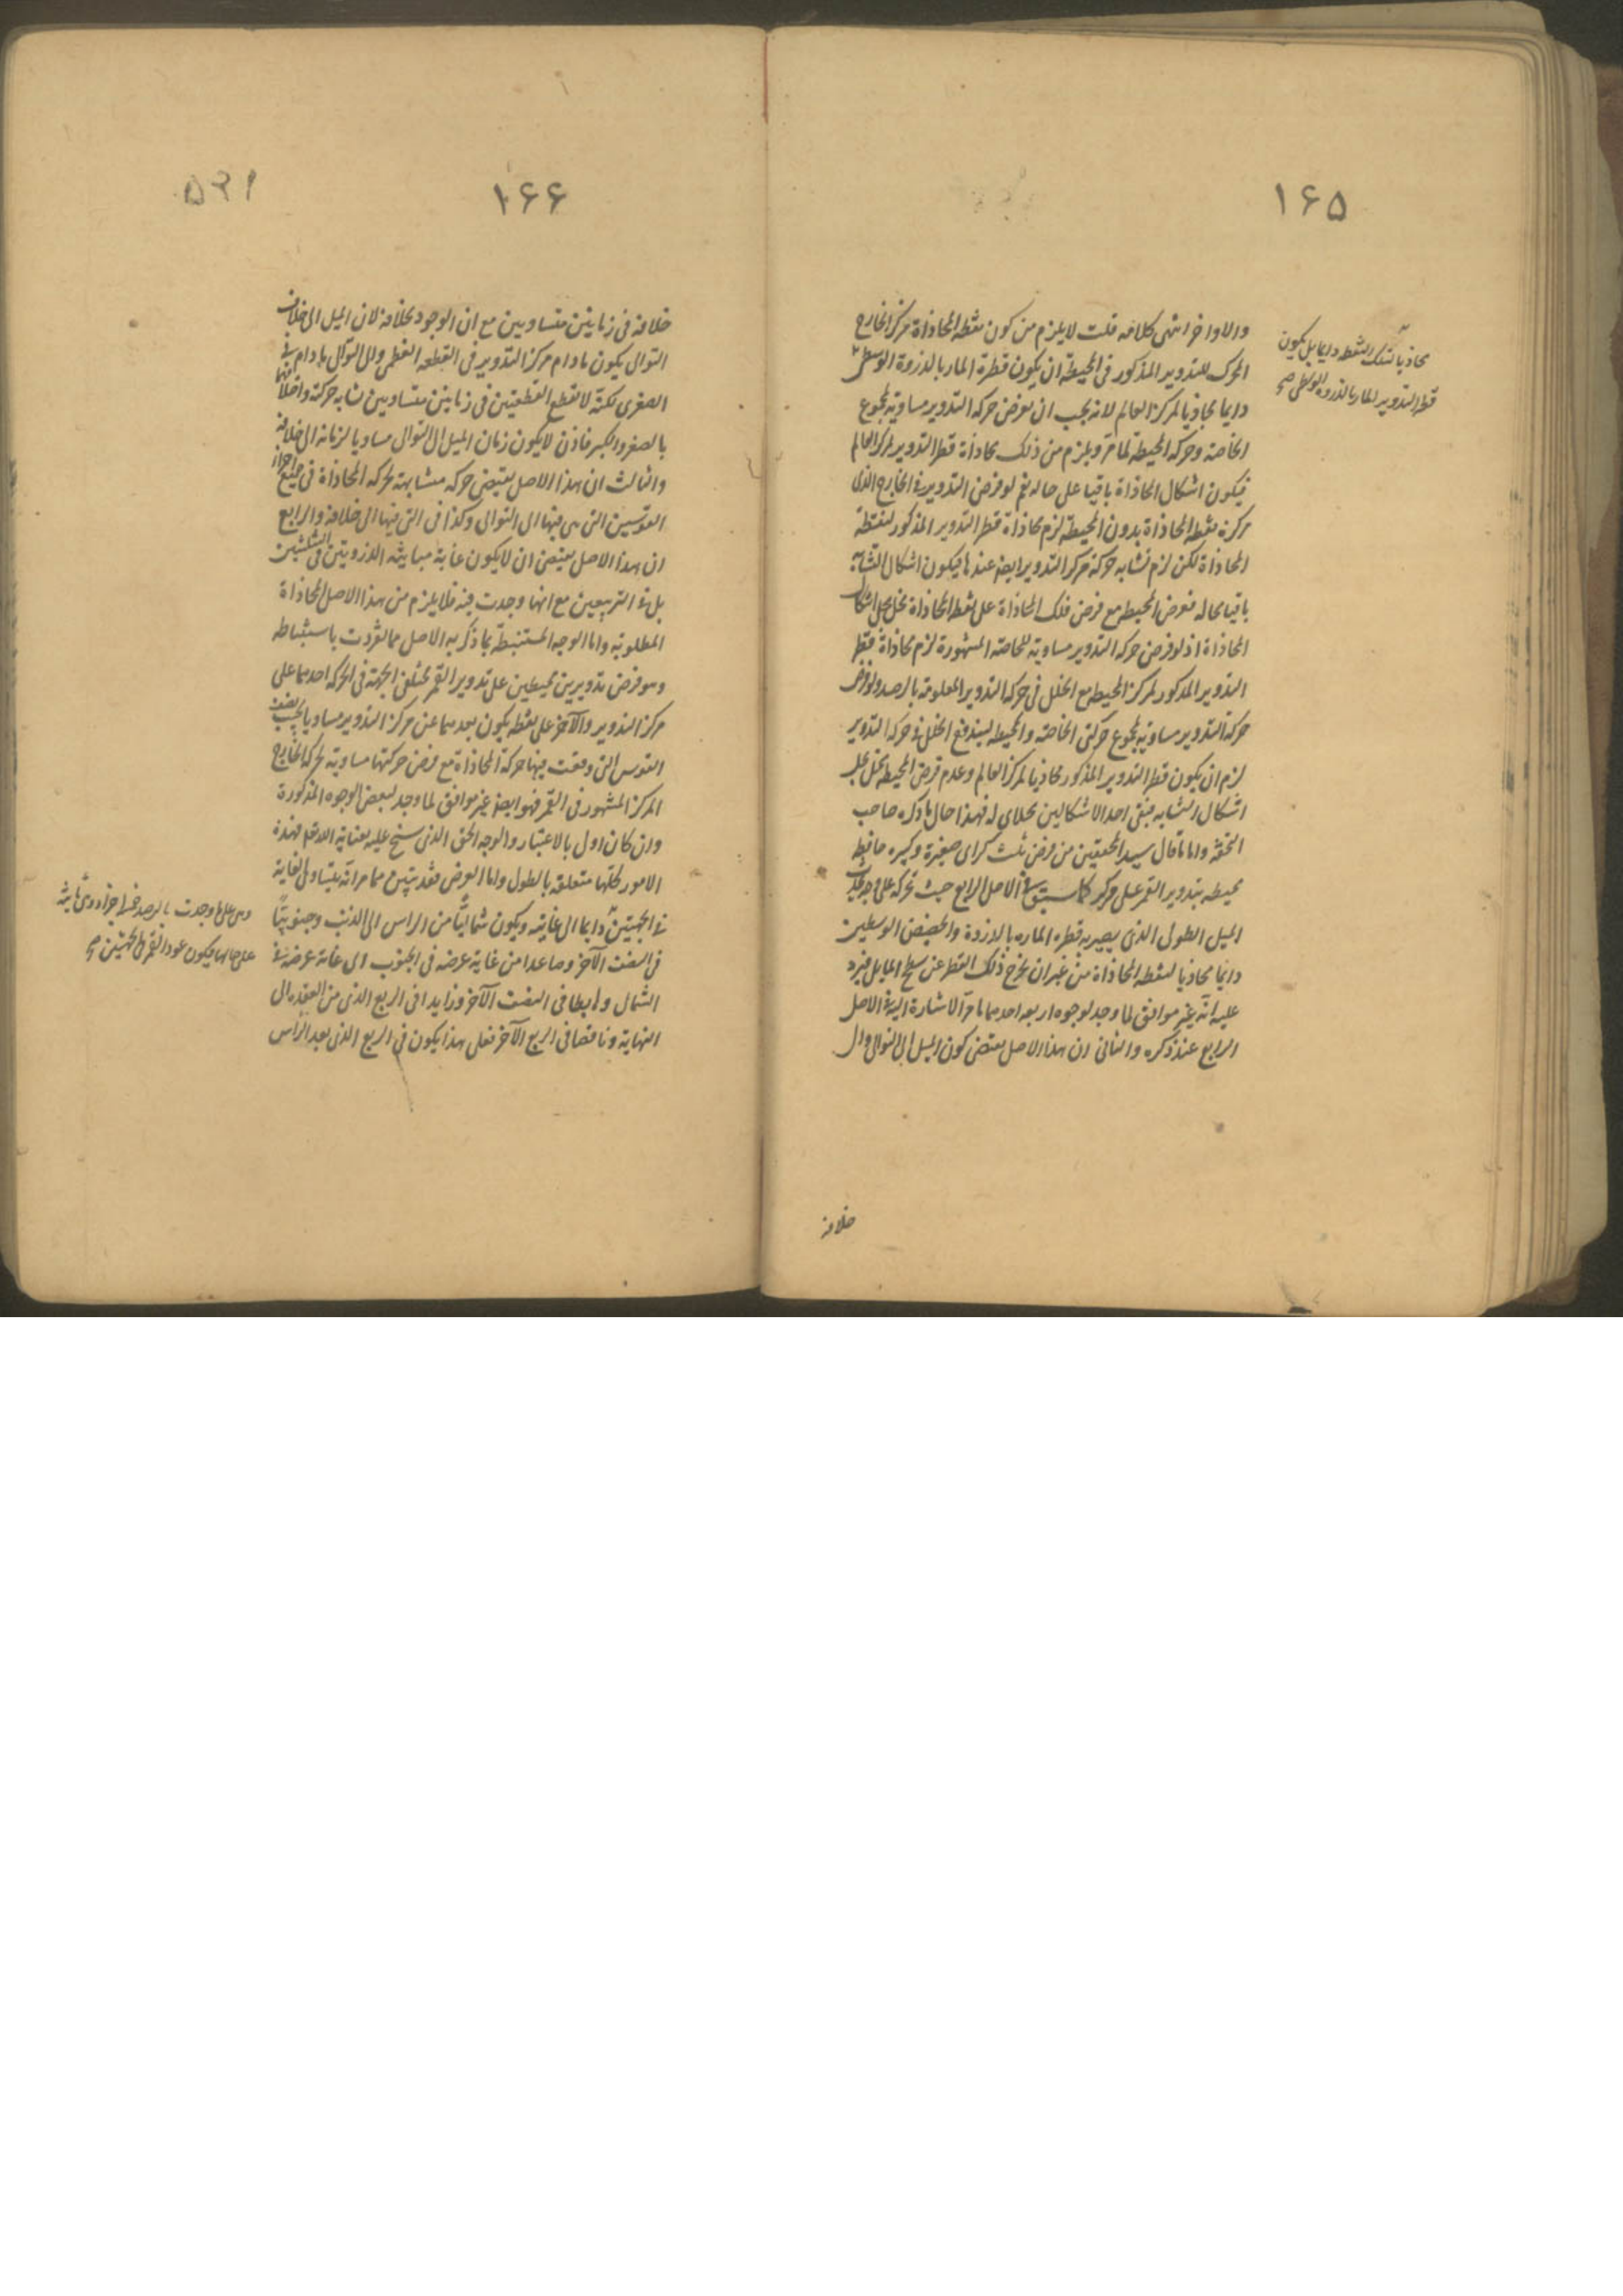 ١٦٥
والاواخر انتهى كلامه قلت لا يلزم من كون نقطة المحاذاة مركز الخارج
المحرك للتدوير المذكور فى المحيطة ان يكون قطرة المار بالذروة الوسطى
دايما محاذيا لمركز العالم لانه يجب ان نفرض حركه التدوير مساوية لمجموع
الخاصة وحركه المحيطة لما مر ويلزم من ذلك محاذاة قطر التدوير لمركز العالم
فيكون اشكال المحاذاة باقيا على حاله ثم لو فرض التدوير فى الخارج الذى
مركزه نقطة المحاذاة بدون المحيطة لزم محاذاة قطر التدوير المذكور لنقطة
المحاذاة لكن لزم تشابه حركة مركز التدوير ايضا عندها فيكون اشكال التشابه
باقيا بحاله ففرض المحيط مع فرض فلك المحاذاة على نقطة المحاذاة مخل بحل اشكال
المحاذاة اذ لو فرض حركه التدوير مساوية للخاصة المشهورة لزم محاذاة قطر
التدوير المذكور لمركز المحيط مع الخلل فى حركه التدوير المعلومة بالرصد ولو فرض
حركة التدوير مساوية لمجموع حركتى الخاصة والمحيطة ليندفع الخلل فى حركة التدوير
لزم ان يكون قطر التدوير المذكور محاذيا لمركز العالم وعدم فرض المحيطة مخل بحل
اشكال التشابه فبقى احد الاشكالين بحلاى له فهذا حال ما ذكره صاحب
التحفة واما ما قال سيد المحققين من فرض ثلث كراى صغيرة وكبيره حافظة
محيطة بتدوير القمر على مركز كما سبق فى الاصل الرابع حيث تحركه على وجه يحدث
الميل الطولى الذى يصير به قطره المار بالذروة والحضيض الوسطيين
دايما محاذيا لنقطة المحاذاة من غير ان يخرج ذلك القطر عن سطح المايل فيرد
عليه انه غير موافق لما وجد لوجوه اربعه احدها ما مر الاشارة اليه فى الاصل
الرابع عند ذكره والثانى ان هذا الاصل يقتضى كون الميل الى التوالى والى
محاذيا لتلك النقطة دايما بل يكون
قطر التدوير المار بالذروة الوسطى صح
خلافه
١٦٦
٥٩١
خلافه فى زمانين متساويين مع ان الوجود بخلافه لان الميل الى خلاف
التوالى يكون ما دام مركز التدوير فى القطعه العظمى والى التوالى ما دام فى
الصغرى لكنه لا يقطع القطعتين فى زمانين متساويين لتشابه حركته واختلافهما
بالصغر والكبر فاذن لا يكون زمان الميل الى التوالى مساويا لزمانه الى خلافه
والثالث ان هذا الاصل يقتضى حركه متشابهة لحركه المحاذاة فى جميع اجزاء
القوسين التى هى فيها الى التوالى وكذا فى التى فيها الى خلافه والرابع
ان هذا الاصل يقتضى ان لا يكون غاية مباينة الذروتين فى التثليثين
بل فى التربيعين مع انها وجدت فيه فلا يلزم من هذا الاصل المحاذاة
المطلوبة واما الوجه المستنبطة بما ذكر به الاصل مما تفردت باستنباطه
وهو فرض تدويرين محيطين على تدوير القمر مختلفى الجهة فى الحركه احدهما على
مركز التدوير والآخر على نقطه يكون بعدها عن مركز التدوير مساويا لجيب نصف
القوس التى وقعت فيها حركة المحاذاة مع فرض حركتها مساوية لحركة الخارج
المركز المشهور فى القمر فهو ايضا غير موافق لما وجد لبعض الوجوه المذكورة
وان كان اولى بالاعتبار والوجه الحق الذى سنح عليه بعناية الله تعالى فهذه
الامور كلها متعلقه بالطول واما العرض فقد تبين مما مر انه يتساوى الغاية
فى الجهتين دايما الى غايته ويكون شماليا من الراس الى الذنب وجنوبيا
فى النصف الآخر وصاعدا من غاية عرضه فى الجنوب الى غاية عرضه فى
الشمال وهابطا فى النصف الآخر وزايدا فى الربع الذى من العقده الى
النهاية وناقصا فى الربع الآخر فعلى هذا يكون فى الربع الذى بعد الراس
وهى على ما وجدت بالرصد خمسة اجزاء وهى ثابتة
على حالها فيكون عود القمر فى الجهتين صح